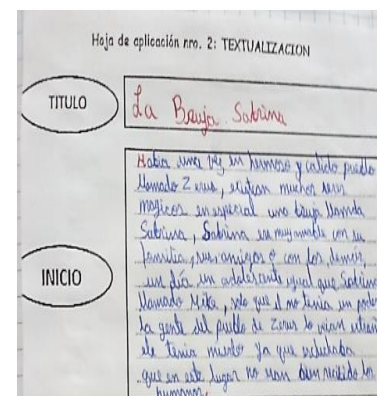 Hoja de aplicación nro. 2: TEXTUALIZACION
TITULO
La Bruja Sabrina
INICIO
Habia una vez un hermoso y calido pueblo
llamado Zerus, existian muchos seres
magicos en especial una bruja llamda
Sabrina, Sabrina es muy amable con su
familia, sus amigos o con los demás,
un día un adolescente igual que Sabrina
llamado Mike, solo que él no tenia un poder
la gente del pueblo de Zerus lo veian
ele tenia miedo Ya que
que en este lugar no eran bien recibido los
humanos.